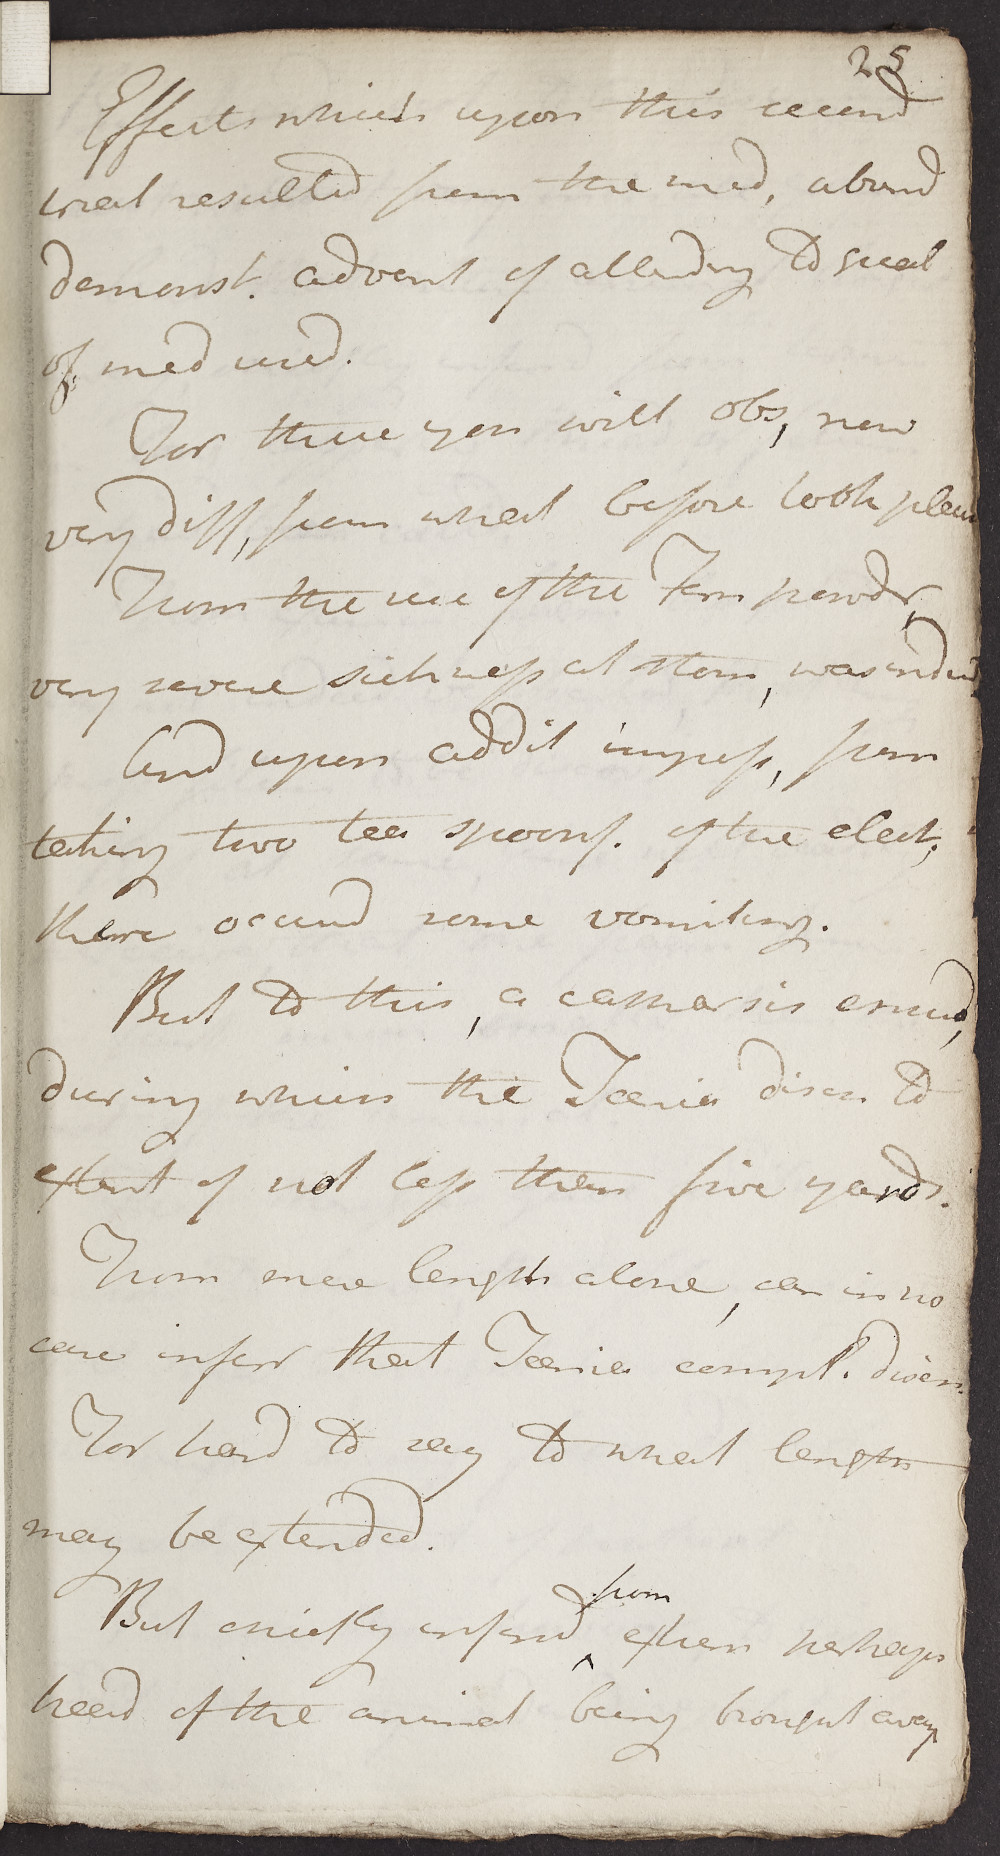 25
Effects which upon this second
trial resulted from the med, abund
demonst. advent of attending to qual
of med used.
For these you will obs, now
very diff, from what before took place
From the use of the Fern powdr,
very severe sickness at stom, was induc
And upon addit impress, from
taking two tea spoonf. of the elect,
there occurrd some vomiting.
But to this, a catharsis ensud,
during which the Taenia disch to
extent of not less than five yards.
From mere length alone, can in no
case infer that Taenia compl. disch.
For hard to say to what length
may be extended.
But chiefly inferrd from perhaps
head of the animal being brought away